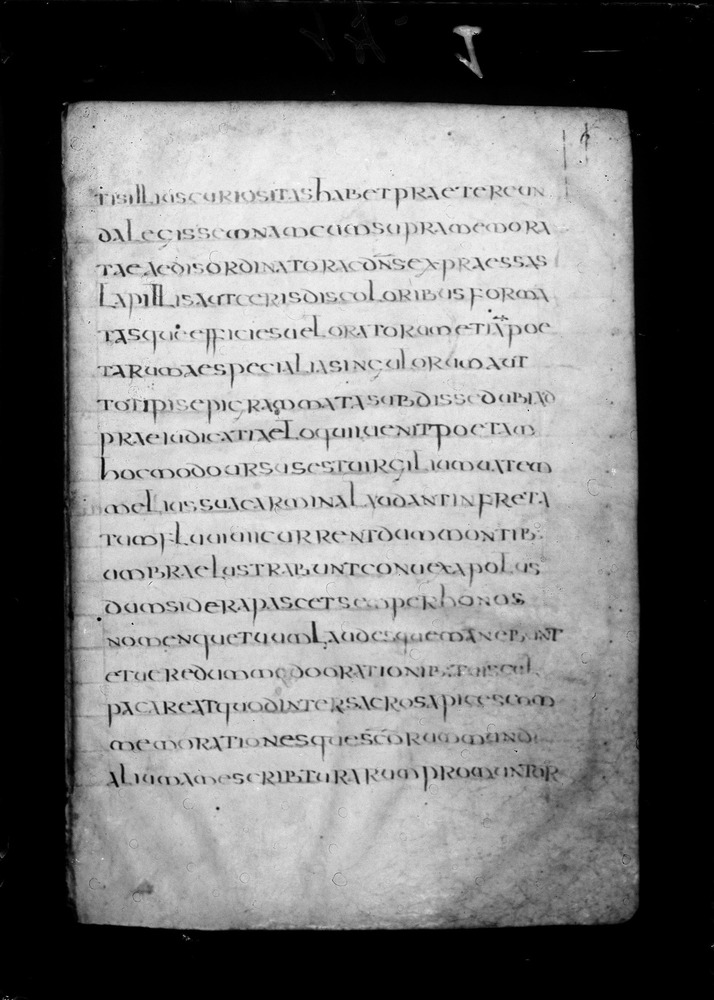 tis illius curiositas habet praetereun
da legissem nam cum supra memora
tae aedis ordinatorac dns expraessas
lapillis aut ceris discoloribus forma
tasque efficies uel oratorum etiā poe
tarum aespecialia singulorum aut
totipis epigrammata subdissed ubi ad
praeiudicatiael oqui uenit poetam
hoc modo ursus est uirgilium autem
melius sua carmina laudant in freta
tum fluuii current dum montib·
umbrae lustrabunt conuexa polus
dum sidera pascet semper honos
nomenque tuum laudesque manebunt
et uere dum modo orationib·
pacareat quod inter sacros apices com
memorationesque scōrum mundi
alium ames cribturarum promuntur